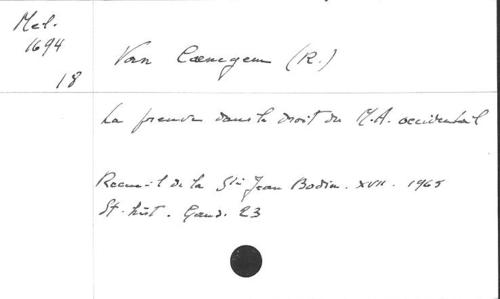 Mel.
1694
18
Van Caenegem (R.)
La preuve dans le droit du M.A. occidental
Recueil de la Sté Jean Bodin. XVII. 1965
St. hist. Gand. 23